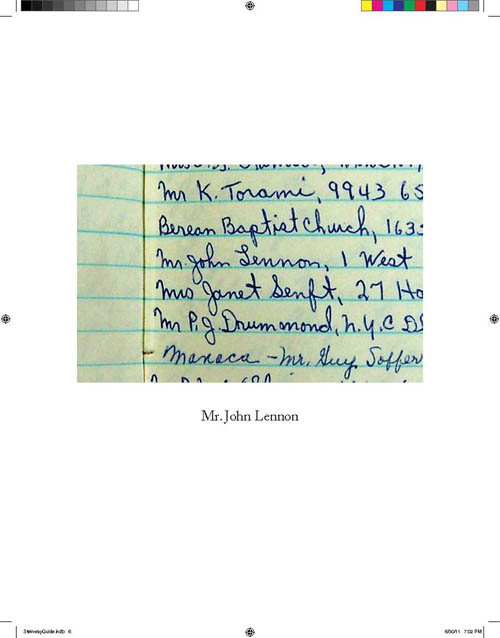 Mr K. Torami, 9943 65
Berean Baptist Church, 163
Mr. John Lennon, 1 West
Mrs Janet Senft, 27 Ho
Mr P.J. Drummond, N.Y.C
Manaca - Mr. Guy Soffer
Mr. John Lennon
SteinwayGuide.indb 6
5/30/11 7:02 PM